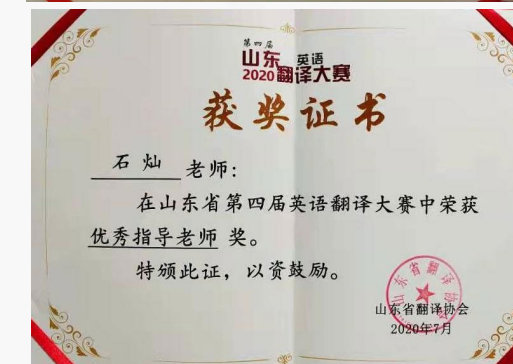 第四届
山东 英语
2020翻译大赛
获奖证书
石灿 老师:
在山东省第四届英语翻译大赛中荣获
优秀指导老师 奖。
特颁此证,以资鼓励。
山东省翻译协会
山东省翻译协会
2020年7月